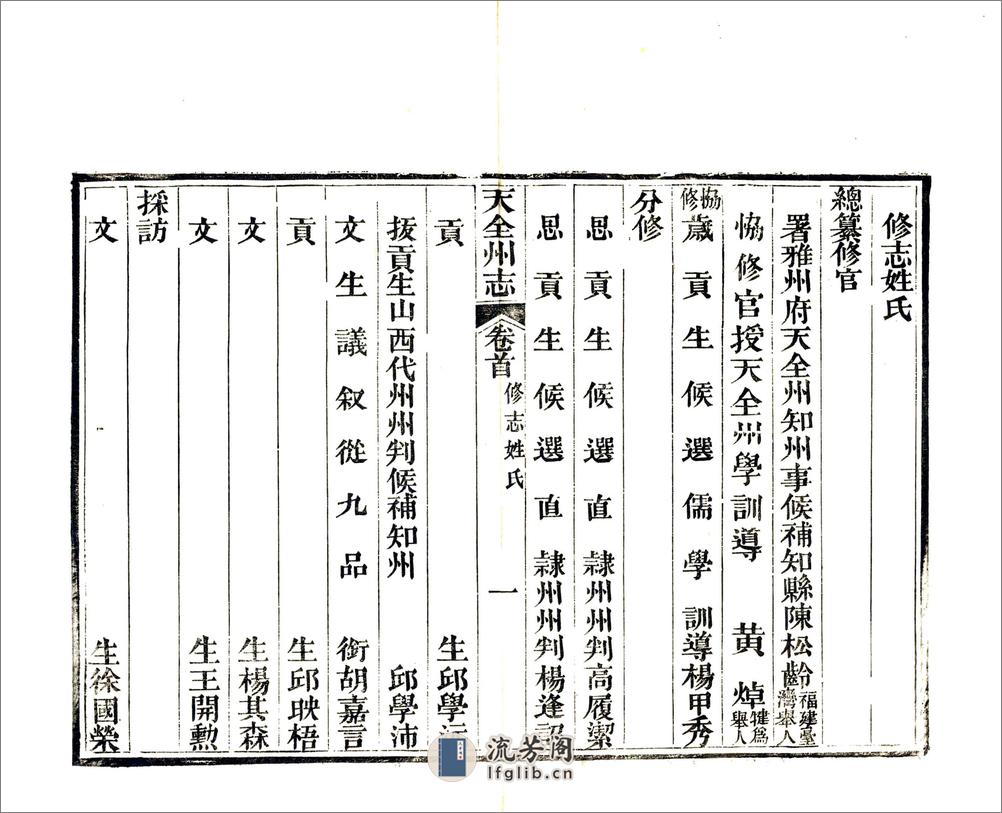 修志姓氏
總纂修官
署雅州府天全州知州事候補知縣陳松齡福建臺灣舉人
恊修官授天全州學訓導 黄焯犍爲舉人
協修歲貢生候選儒學訓導楊甲秀
分修
恩貢生候選直隷州州判高履潔
恩貢生候選直隷州州判楊逢
天全州志 卷首 修志姓氏 一
貢 生邱學
拔貢生山西代州州判候補知州 邱學沛
文生議叙從九品 銜胡嘉言
貢 生邱映梧
文 生楊其森
文 生王開勲
採訪
文 生徐國榮
流芳阁
lfglib.cn